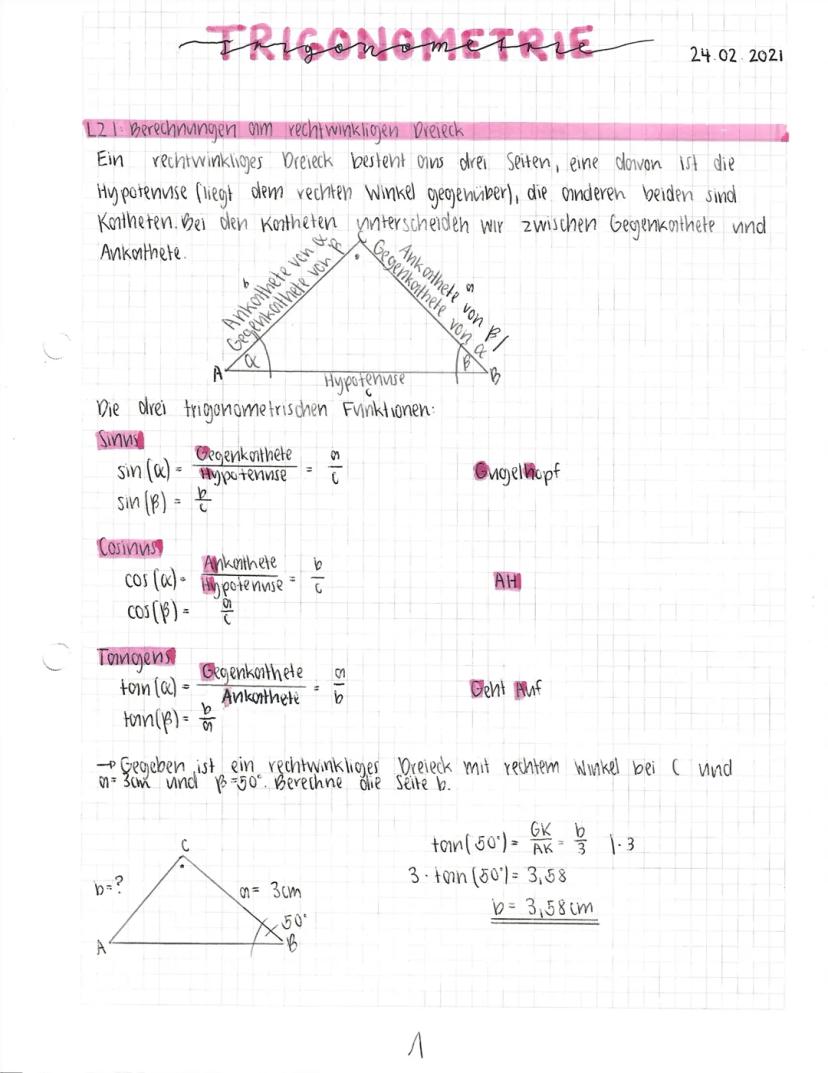 TRIGONOMETRIE
Trigonometrie
24.02.2021
L2 1: Berechnungen am rechtwinkligen Dreieck
Ein rechtwinkliges Dreieck besteht aus drei Seiten, eine davon ist die
Hypotenuse (liegt dem rechten Winkel gegenüber), die anderen beiden sind
Katheten. Bei den Katheten unterscheiden wir zwischen Gegenkathete und
Ankathete.
C
b
Ankathete von α
Gegenkathete von β
a
Ankathete von β /
Gegenkathete von α
A α β B
Hypotenuse
c
Die drei trigonometrischen Funktionen:
Sinus
sin (α) = Gegenkathete / Hypotenuse = a / c Gugelhopf
sin (β) = b / c
Cosinus
cos (α) = Ankathete / Hypotenuse = b / c AH
cos (β) = a / c
Tangens
tan (α) = Gegenkathete / Ankathete = a / b Geht Auf
tan (β) = b / a
→ Gegeben ist ein rechtwinkliges Dreieck mit rechtem Winkel bei C und
a = 3cm und β = 50°. Berechne die Seite b.
C
b = ? a = 3cm
50°
A B
tan (50°) = GK / AK = b / 3 | · 3
3 · tan (50°) = 3,58
b = 3,58 cm
1